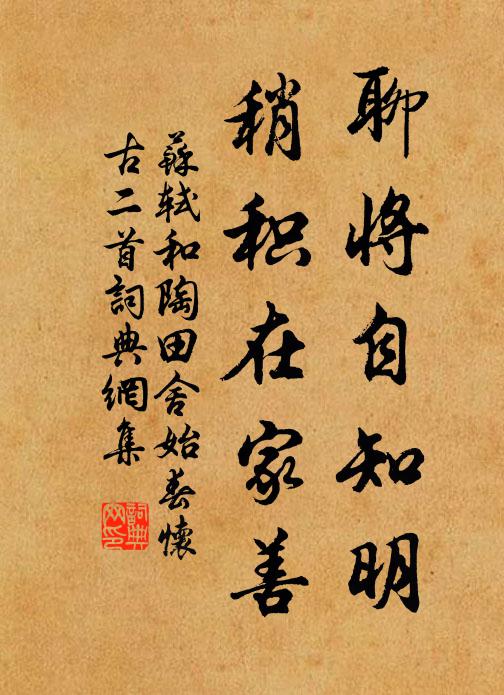 聊将自知明
稍积在家善
蘇轼和陶田舍始春懷
古二首詞典網集
詞典
网印